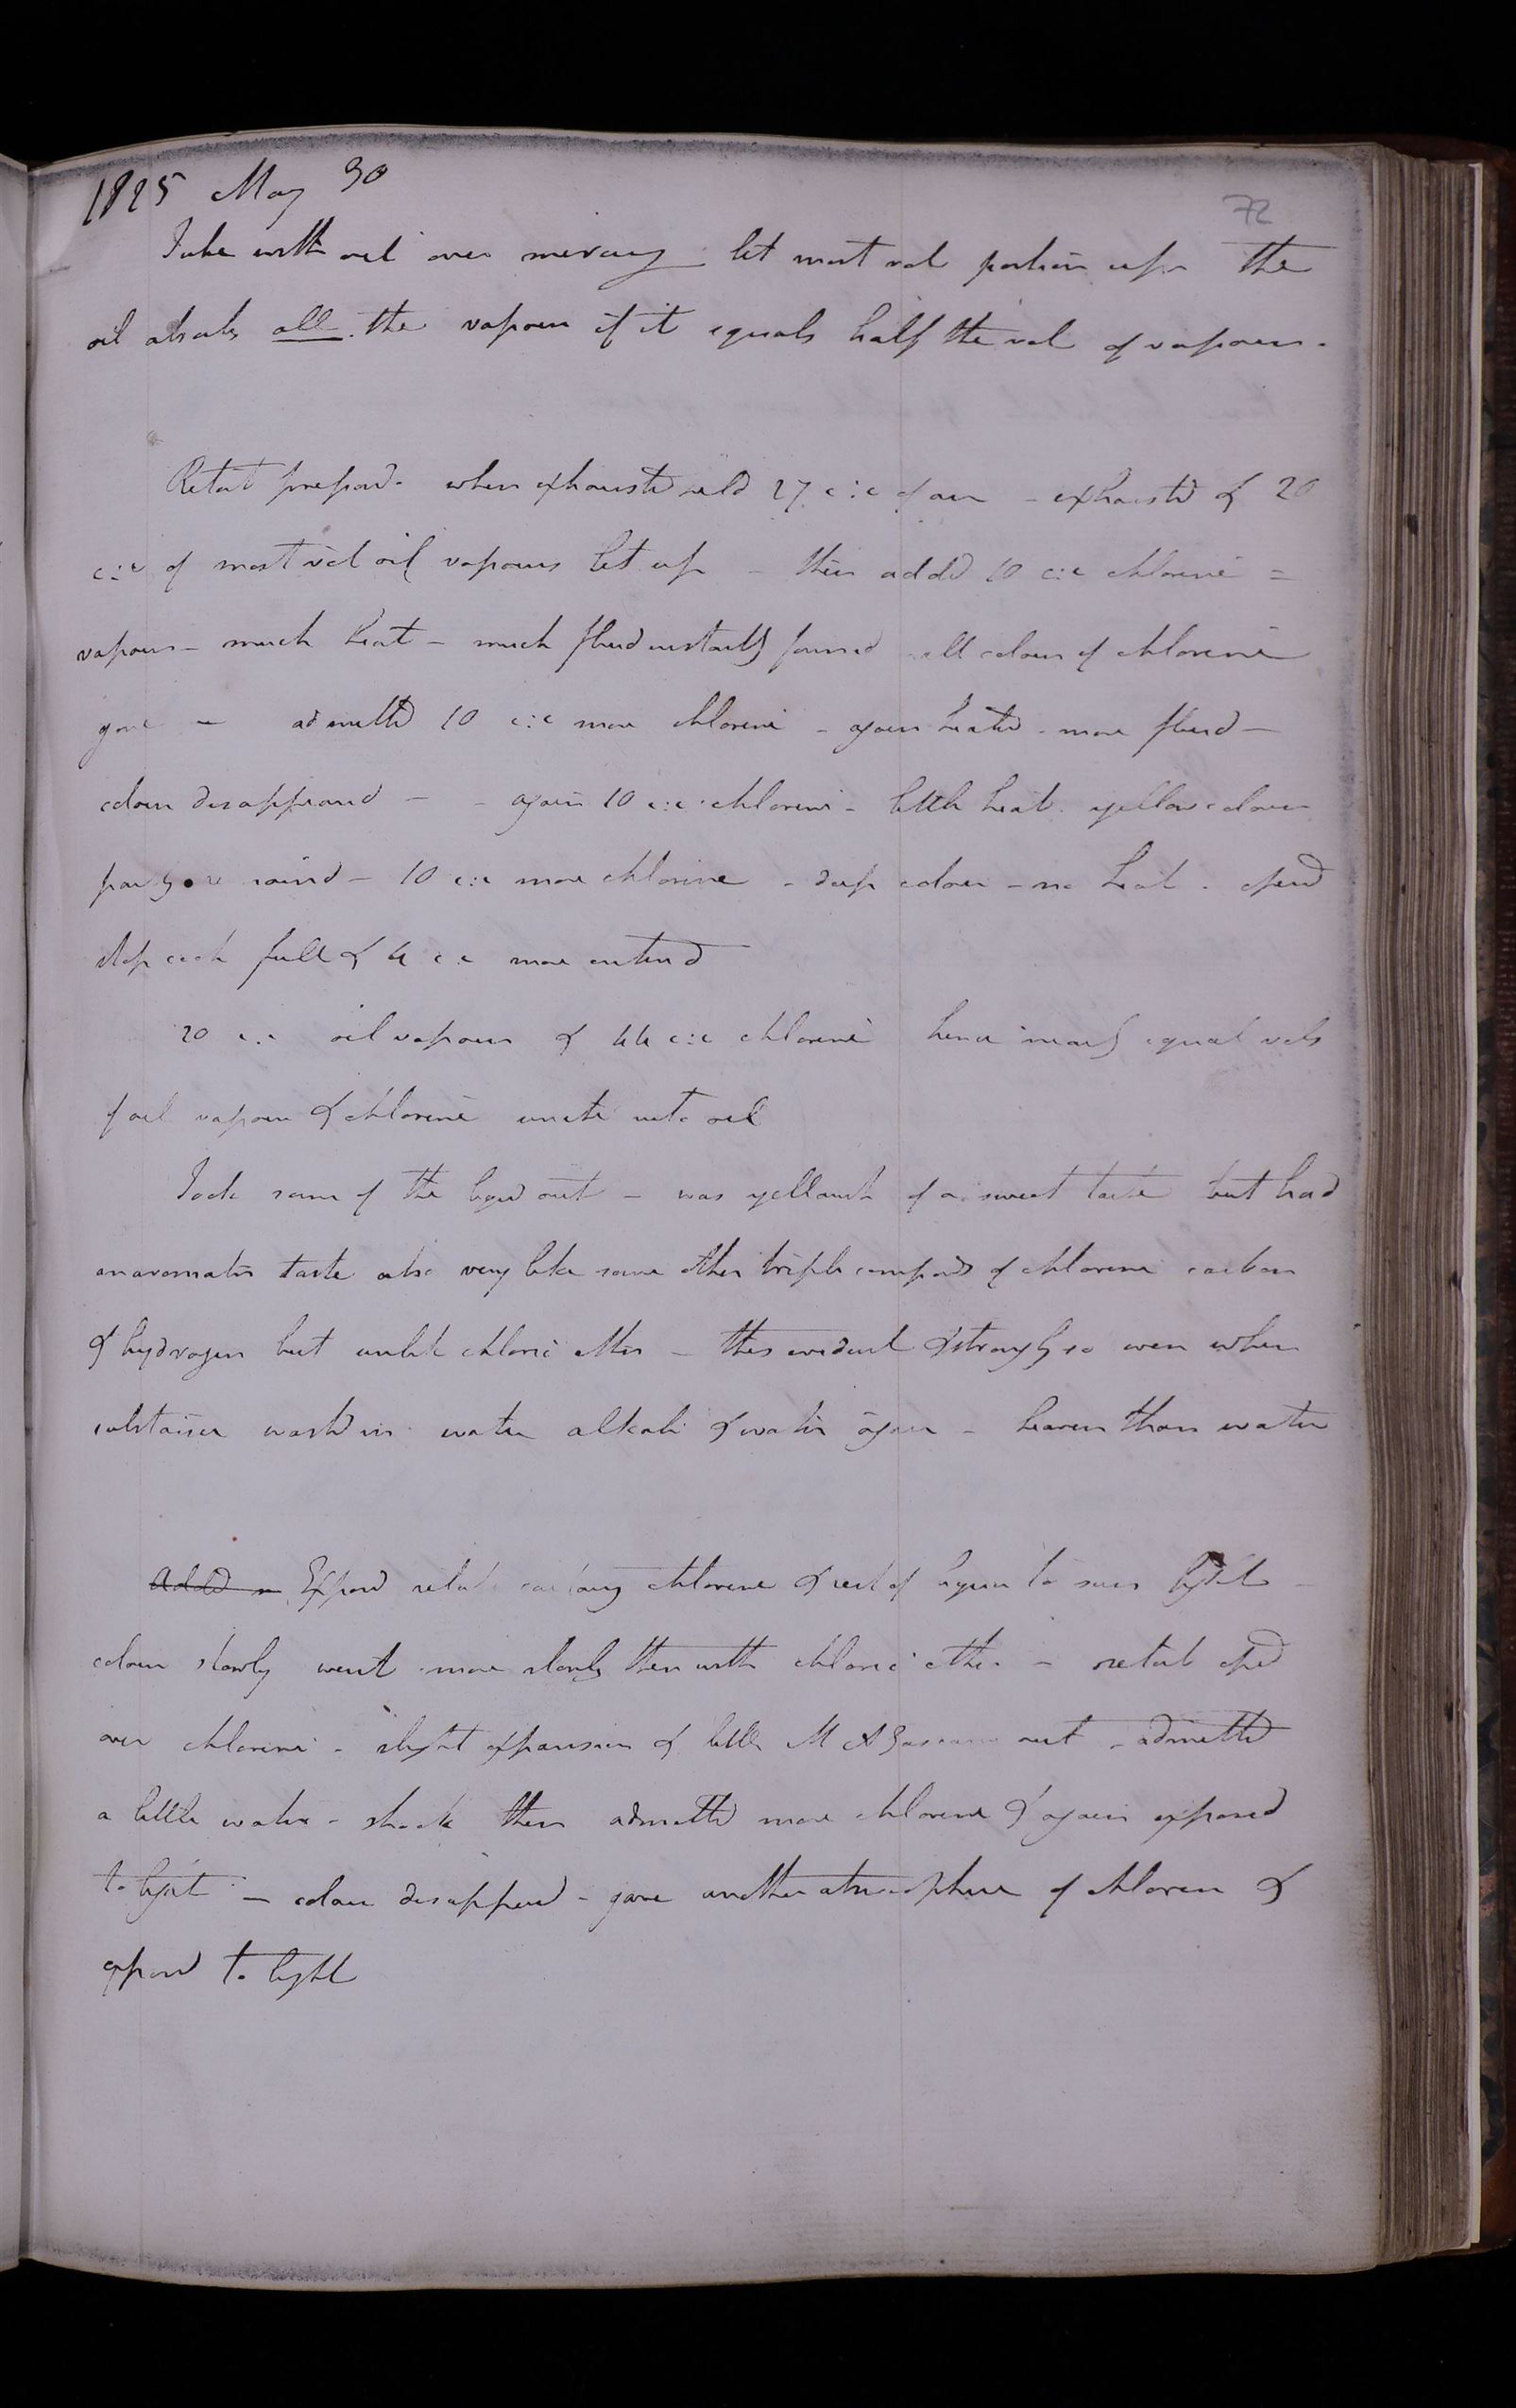 1825 May 30
72
Tube with oil over mercury let most vol portion up the
oil absorbs all the vapour if it equals half the vol of vapour.
Retort prepard. when exhausted held 27 c:c of air - exhausted & 20
c:c of most vol oil vapours let up - then added 10 c:c chlorine =
vapour - much heat - much fluid instantly formed all colour of chlorine
gone - admitted 10 c:c more chlorine - again heated - more fluid -
colour disappeard - - again 10 c:c chlorine - little heat. yellow colour
remaind - 10 c:c more chlorine - deep colour - no heat. opend
stop cock full & 4 c:c more enterd
20 c:c oil vapour & 44 c:c chlorine hence nearly equal vols
of oil vapour & chlorine unite into oil
Took some of the liquid out - was yellowish of a sweet taste but had
an aromatic taste also very like some other triple compounds of chlorine carbon
& hydrogen but unlike chloric ether - this evident & strongly so even when
substance washd in water alkali & water again - heavier than water
Added Exposd retort containg chlorine & rest of liquor to suns light -
colour slowly went more slowly then with chloric ether - retort opd
over chlorine - slight expansion & little M A Gas came out - admitted
a little water - shook then admitted more chlorine & again exposed
to light - colour disappeard - gave another atmosphere of chlorine &
exposd to light